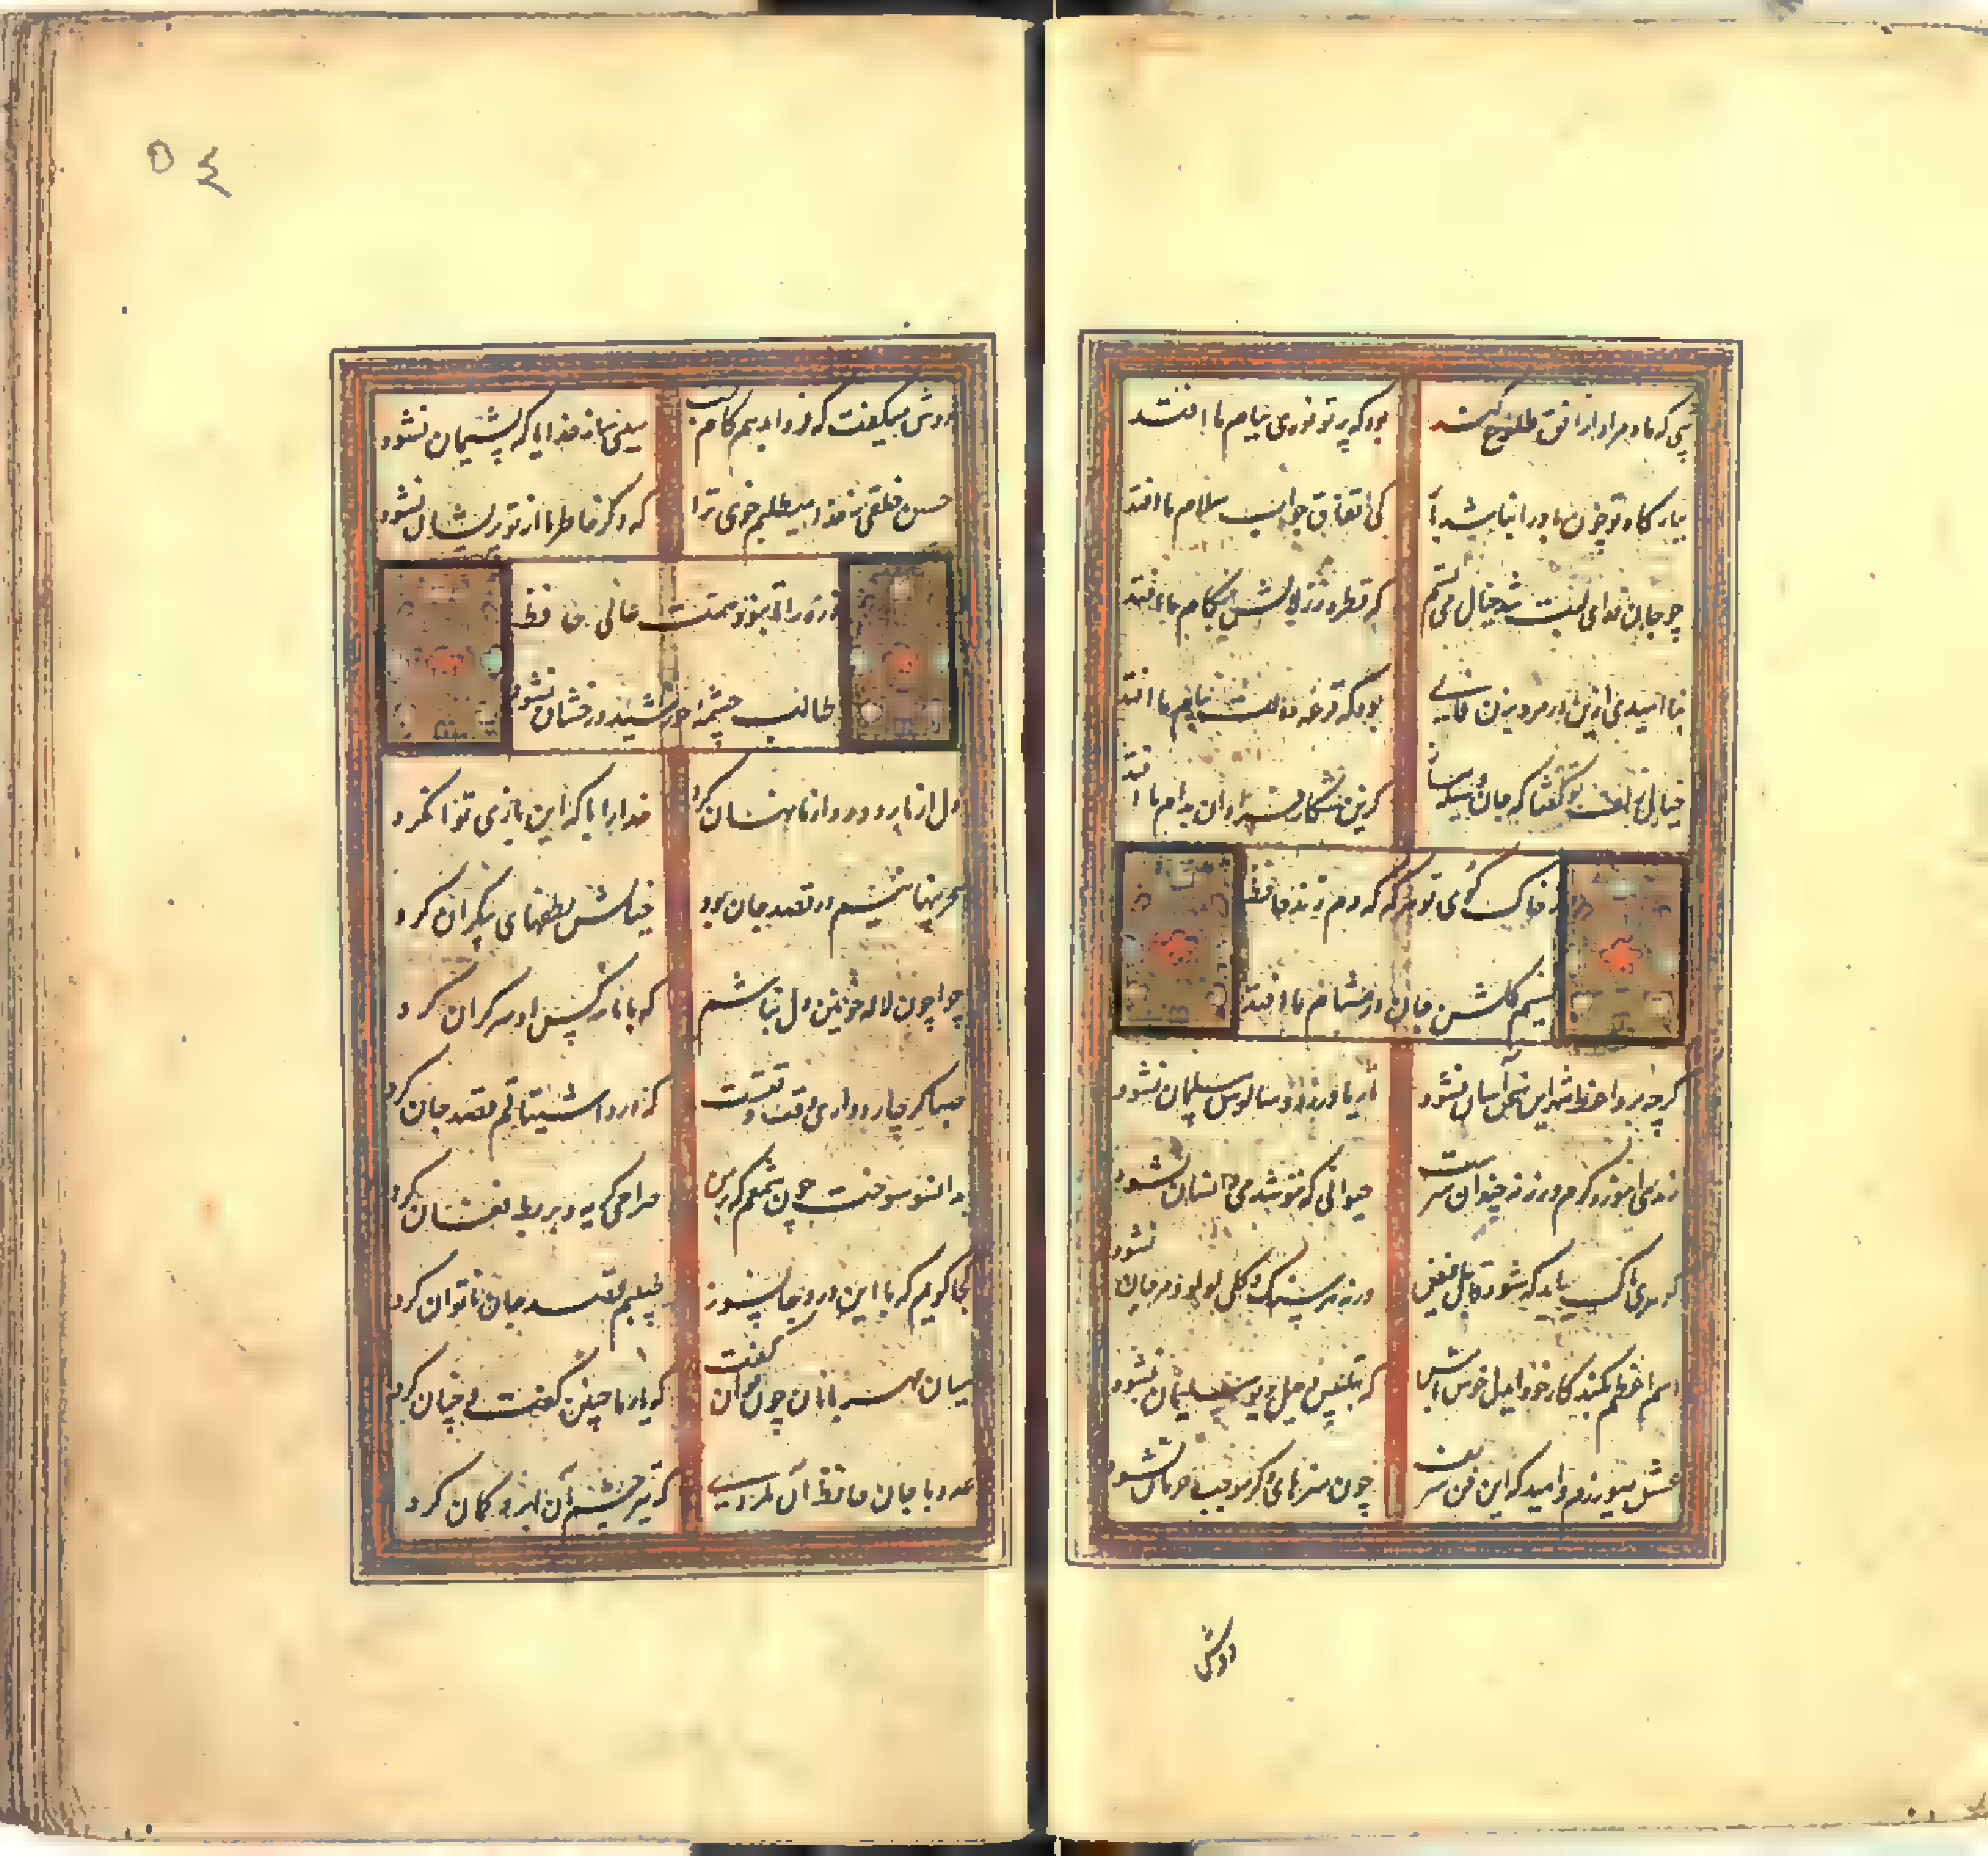 شبی که ماه مراد از افق طلوع کند
بود که پرتو نوری ببام ما افتد
ببارگاه تو چون باد را نباشد بار
کی اتفاق جواب سلام ما افتد
چو جان فدای لبت شد خیال می‌بستم
که قطره ز زلالش بکام ما افتد
بنا امیدی ازین در مرو بزن فالی
بود که قرعه دولت بنام ما افتد
خیال زلف تو گفتا که جان وسیله مساز
کزین شکار فراوان بدام ما افتد
ز خاک کوی تو هر گه که دم زند حافظ
نسیم گلشن جان در مشام ما افتد
گرچه بر واعظ شهر این سخن آسان نشود
تا ریا ورزد و سالوس مسلمان نشود
رندی آموز و کرم ورز نه چندان هنرست
حیوانی که ننوشد می و انسان نشود
گوهری پاک بباید که شود قابل فیض
ورنه هر سنگ و گلی لولو و مرجان نشود
اسم اعظم بکند کار خود ایدل خوش باش
که بتلبیس و حیل دیو سلیمان نشود
عشق میورزم و امید که این فن شریف
چون هنرهای دگر موجب حرمان نشود
دوش
دوش میگفت که فردا بدهم کام دلت
سببی ساز خدایا که پشیمان نشود
حسن خلقی ز خدا میطلبم خوی ترا
که دگر خاطر ما از تو پریشان نشود
ذره را تا نبود همت عالی حافظ
طالب چشمه خورشید درخشان نشود
دل از ما برد و روی از ما نهان کرد
خدا را با که این بازی توان کرد
سحر تنهائیم در قصد جان بود
خیالش لطفهای بیکران کرد
چرا چون لاله خونین دل نباشم
که با ما نرگس او سر گران کرد
صبا گر چاره داری وقت وقتست
که درد اشتیاقم قصد جان کرد
بدانسان سوخت چون شمعم که بر من
صراحی گریه و بربط فغان کرد
کجا گویم که با این درد جانسوز
طبیبم قصد جان ناتوان کرد
میان مهربانان چون توان گفت
که یار ما چنین گفت و چنان کرد
عدو با جان حافظ آن نکردی
که تیر چشم آن ابرو کمان کرد
٥٤